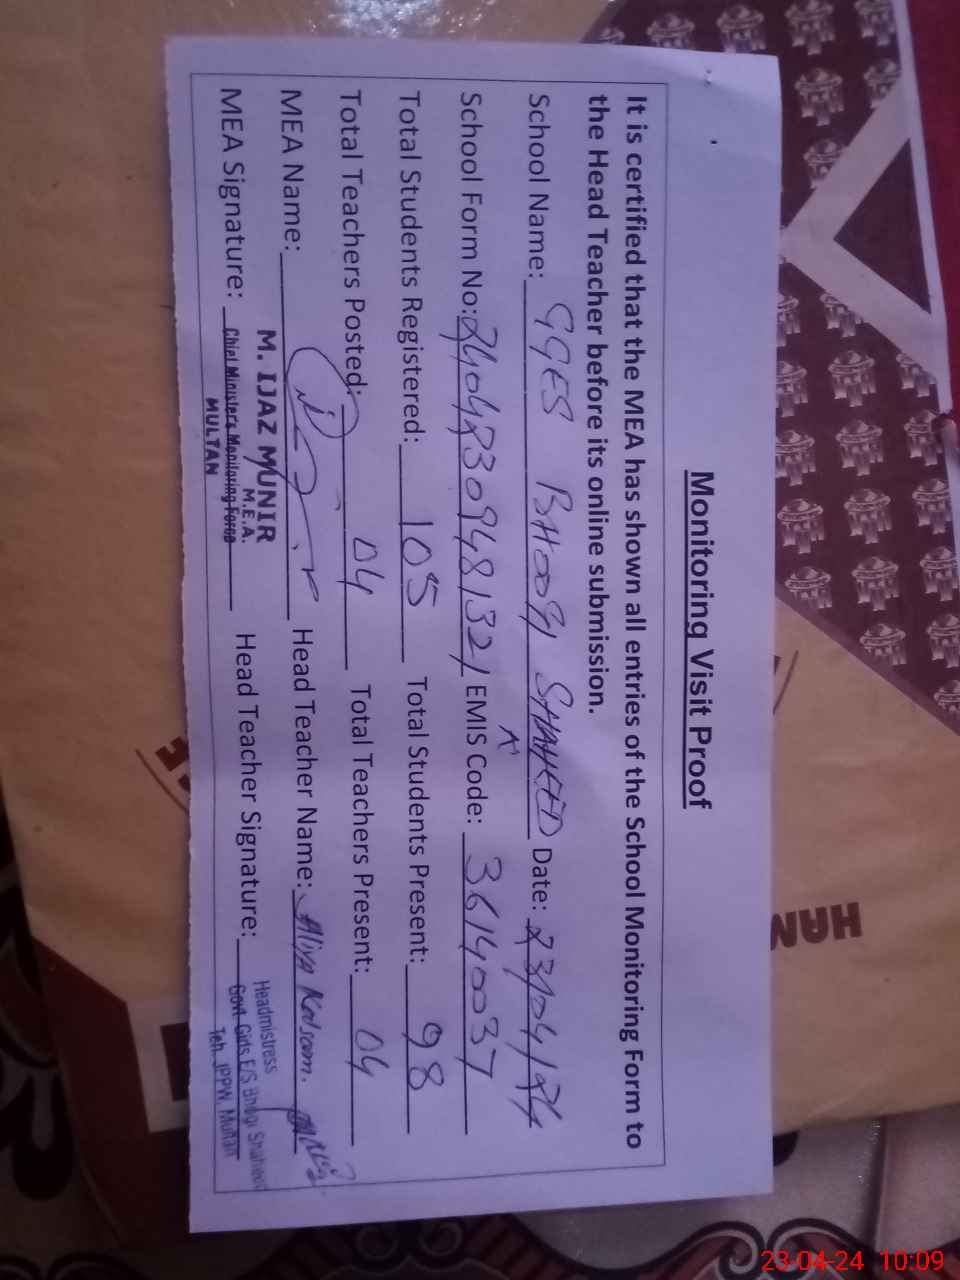 Monitoring Visit Proof
It is certified that the MEA has shown all entries of the School Monitoring Form to
the Head Teacher before its online submission.
School Name: GGES BHOOGI SHAHEED Date: 23/04/24
School Form No: 24042309481321 EMIS Code: 36140037
Total Students Registered: 105 Total Students Present: 98
Total Teachers Posted: 04 Total Teachers Present: 04
MEA Name: Head Teacher Name: Aliya Kalsom.
M. IJAZ MUNIR
M.E.A.
MEA Signature: Chief Ministers Monitoring Force Head Teacher Signature:
MULTAN
Headmistress
Govt. Girls E/S Bhogi Shaheed
Teh. JPPW, Multan
HAN
23-04-24 10:09